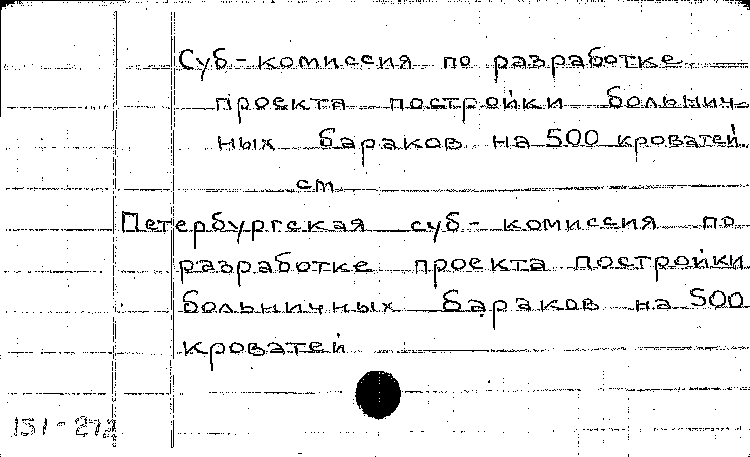 Суб-комиссия по разработке
проекта постройки больнич-
ных бараков на 500 кроватей
см
Петербургская суб-комиссия по
разработке проекта постройки
больничных бараков на 500
кроватей